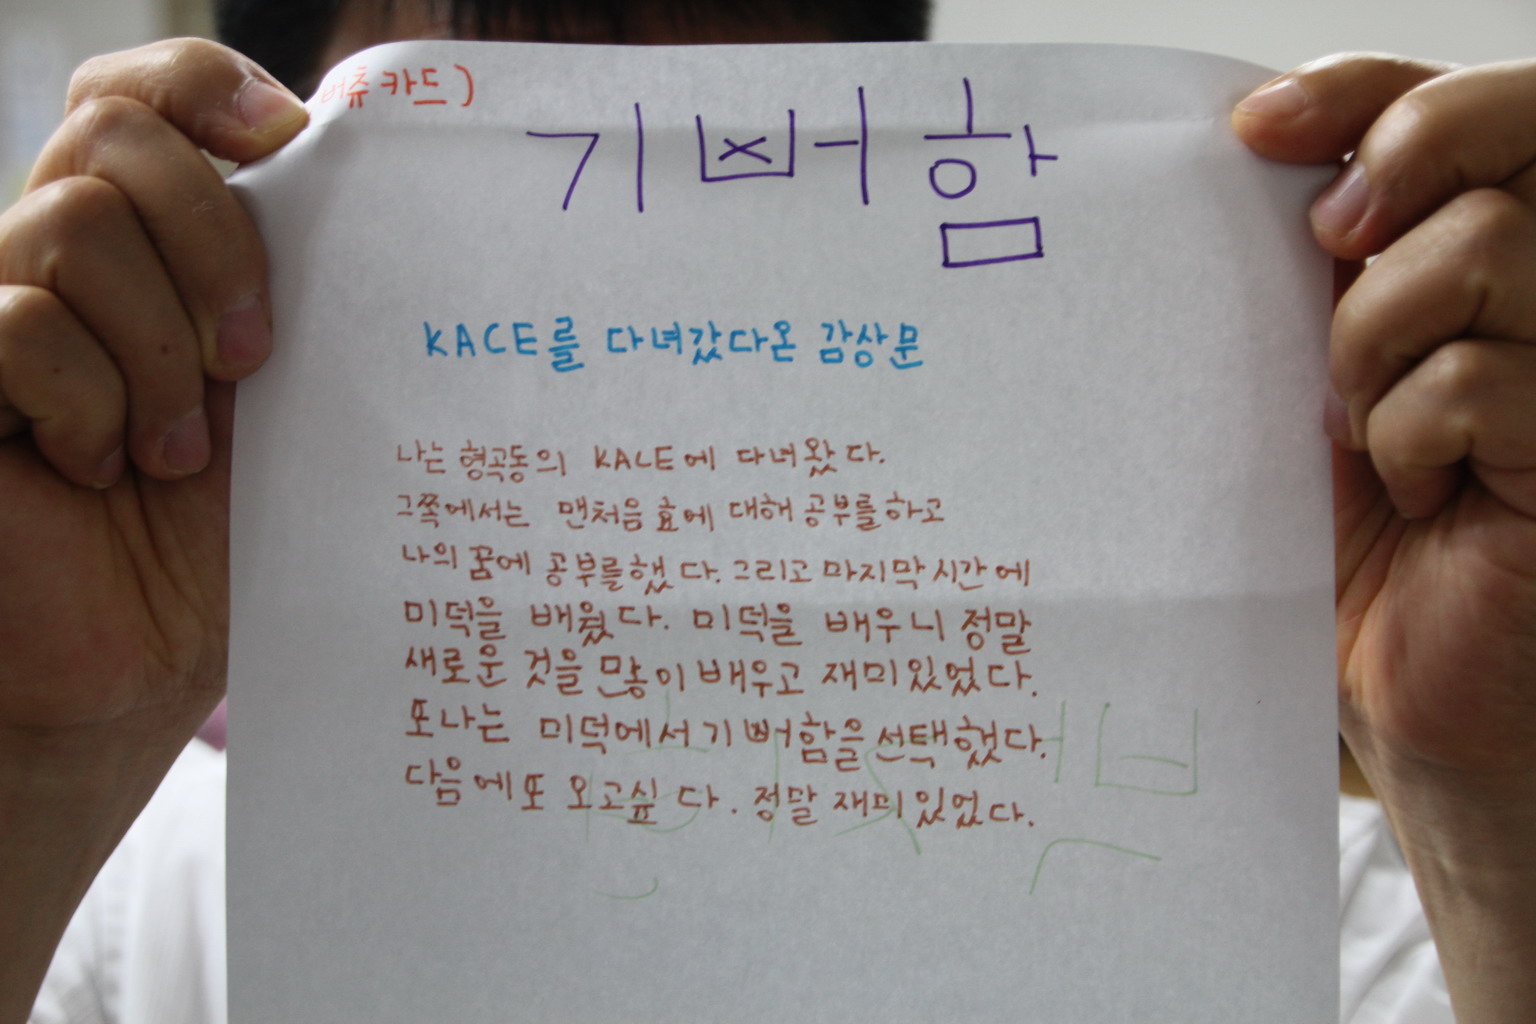 버츄카드)
기뻐함
KACE를 다녀갔다온 감상문
나는 형곡동의 KACE에 다녀왔다.
그쪽에서는 맨처음 효에 대해 공부를하고
나의 꿈에 공부를했다. 그리고 마지막시간에
미덕을 배웠다. 미덕을 배우니 정말
새로운 것을 많이배우고 재미있었다.
또나는 미덕에서기뻐함을 선택했다.
다음에또 오고싶다. 정말 재미있었다.